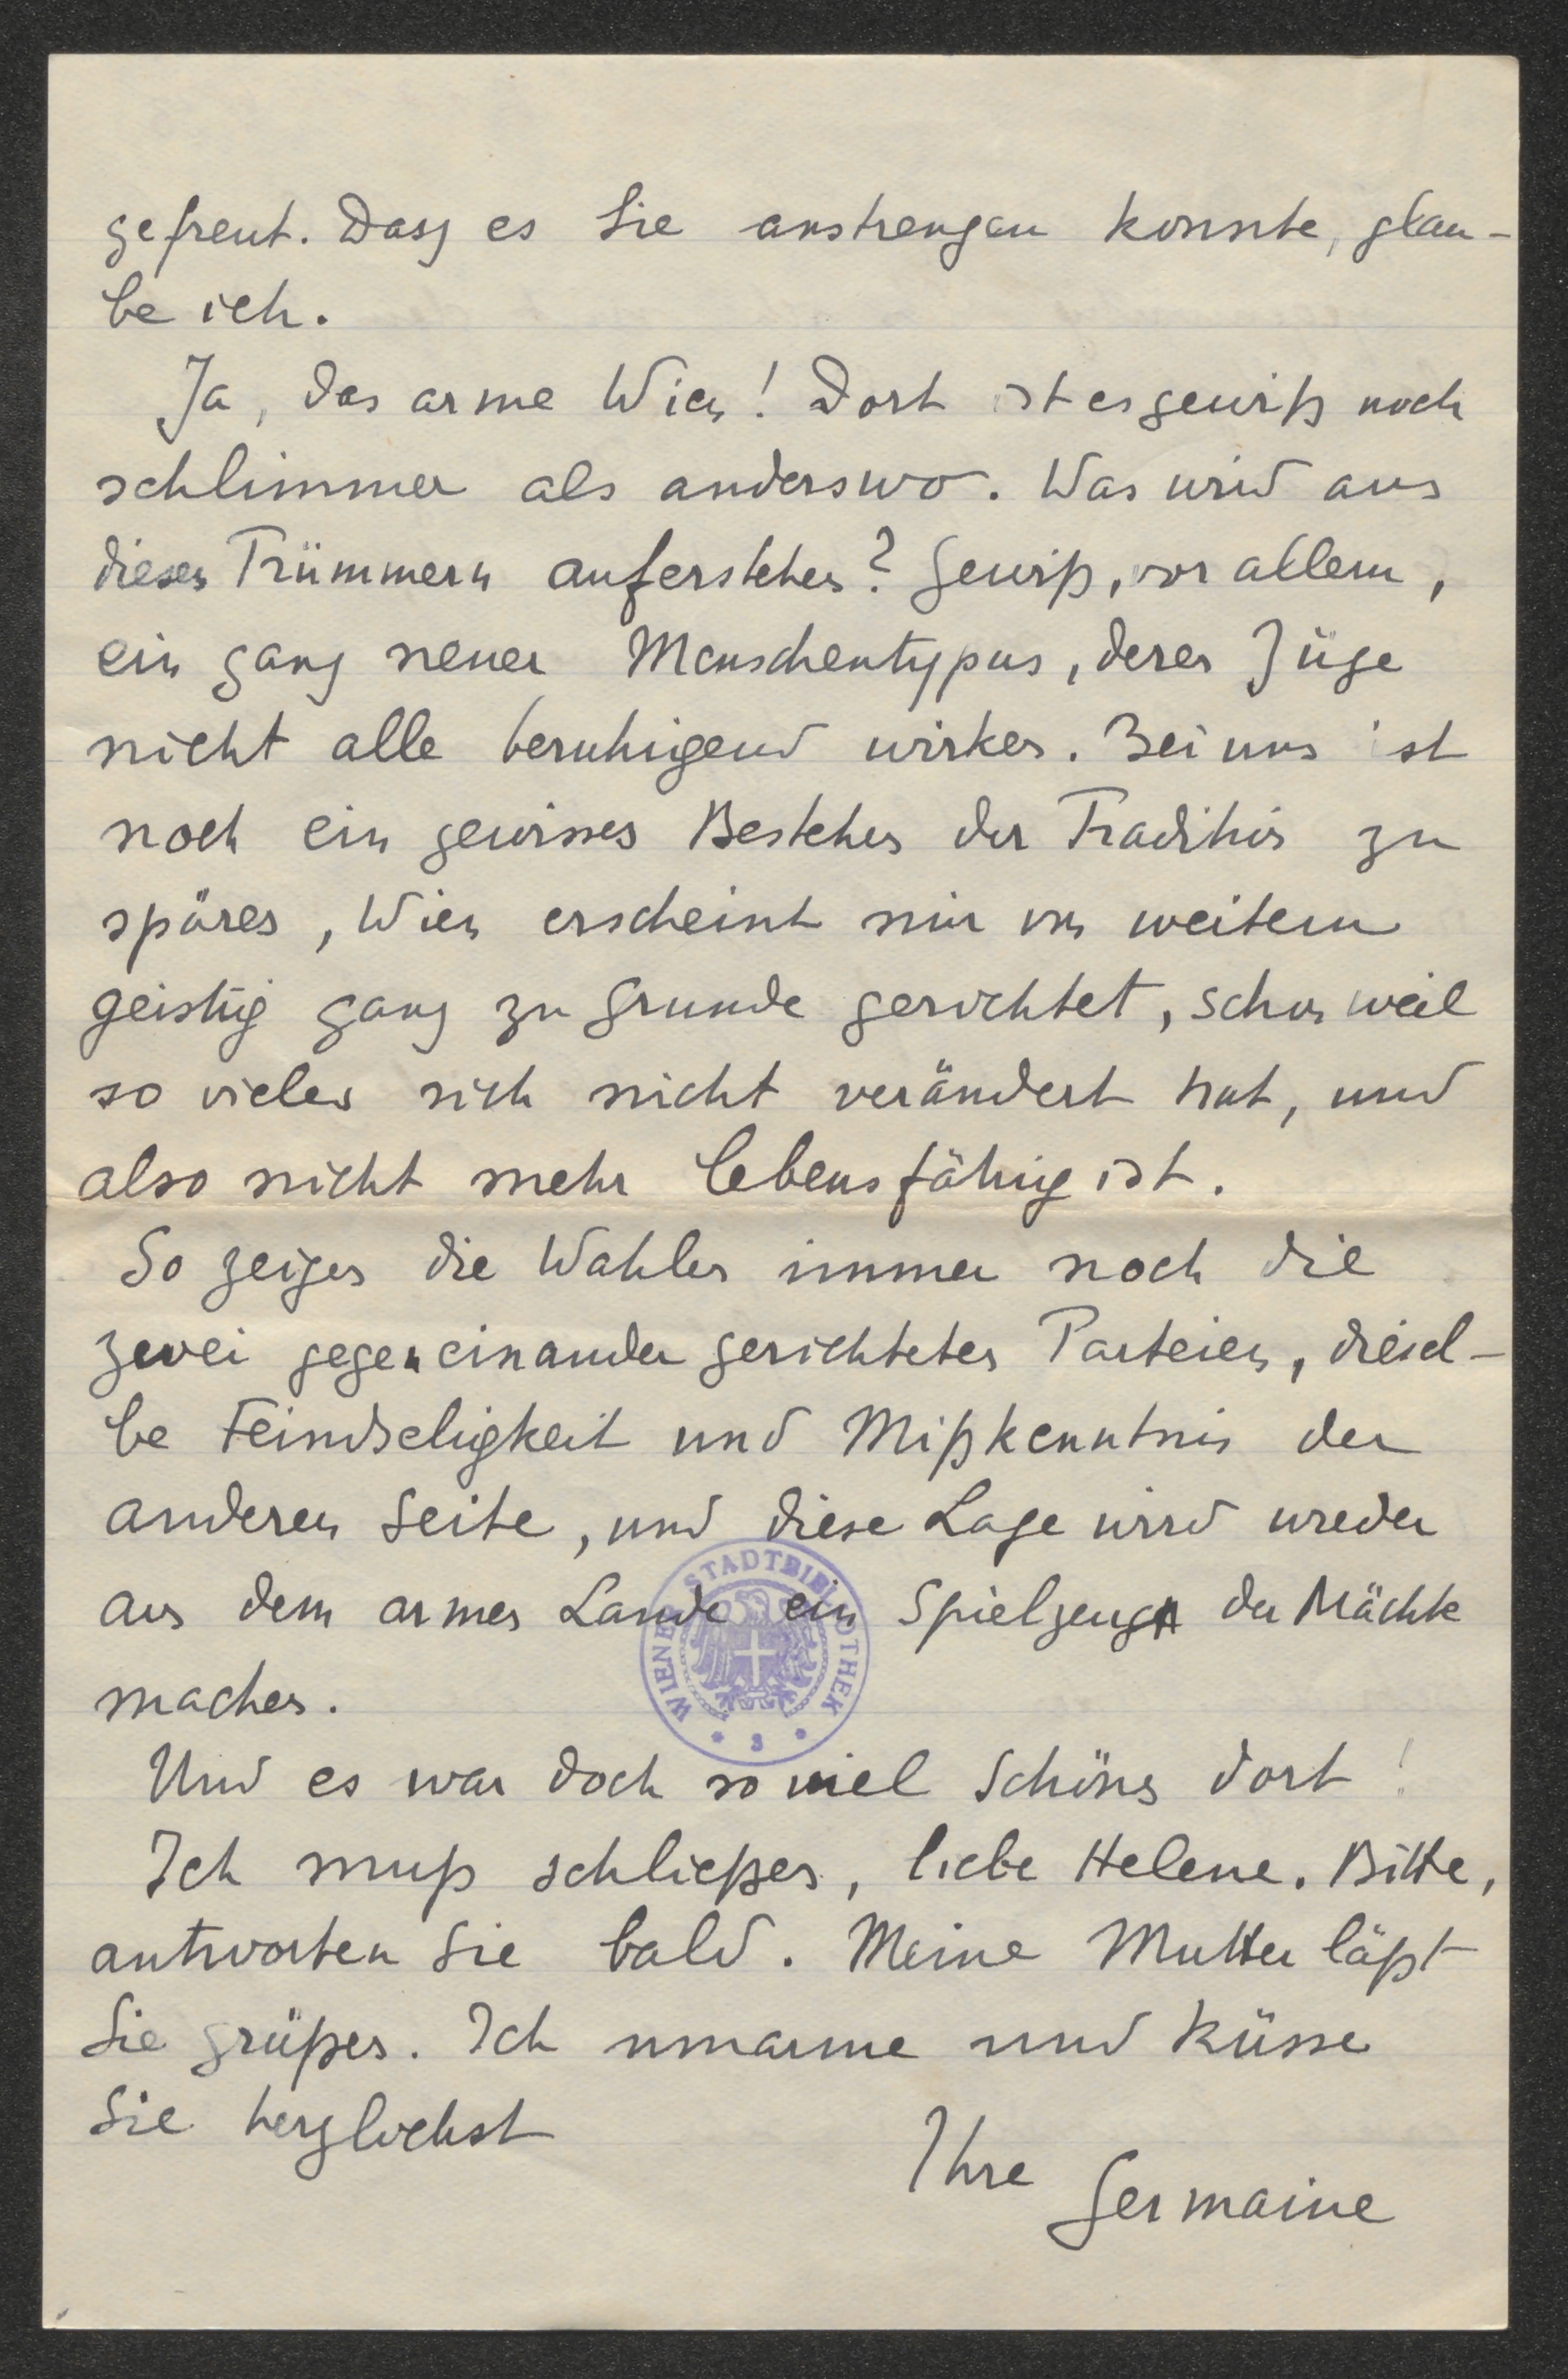 gefreut. Dass es Sie anstrengen konnte, glau-
be ich.
Ja, das arme Wien! Dort ist es gewiß noch
schlimmer als anderswo. Was wird aus
diesen Trümmern auferstehen? Gewiß, vor allem,
ein ganz neuer Menschentypus, deren Züge
nicht alle beruhigend wirken. Bei uns ist
noch ein gewisses Bestehen der Tradition zu
spüren, Wien erscheint mir von weitem
geistig ganz zu Grunde gerichtet, schon weil
so vieles sich nicht verändert hat, und
also nicht mehr lebensfähig ist.
So zeigen die Wahlen immer noch die
zwei gegeneinander gerichteten Parteien, diesel-
be Feindseligkeit und Mißkenntnis der
anderen Seite, und diese Lage wird wieder
aus dem armen Lande ein Spielzeug der Mächte
machen.
WIENER STADTBIBLIOTHEK
* 3 *
Und es war doch so viel Schönes dort!
Ich muß schließen, liebe Helene. Bitte,
antworten Sie bald. Meine Mutter läßt
Sie grüßen. Ich umarme und küsse
Sie herzlichst
Ihre Germaine